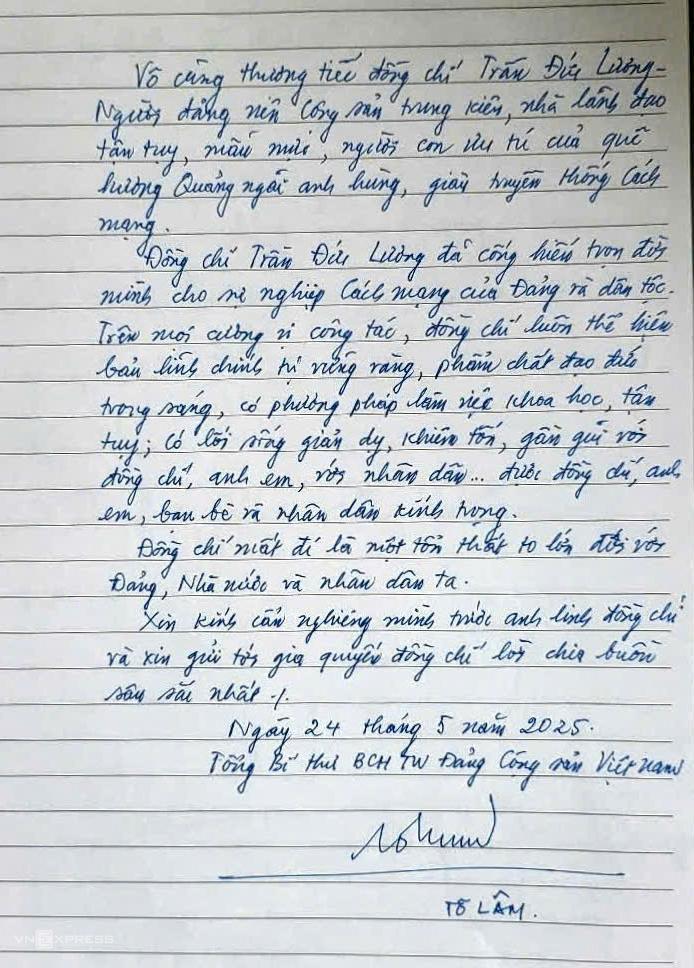 Vô cùng thương tiếc đồng chí Trần Đức Lương -
Người đảng viên Cộng sản trung kiên, nhà lãnh đạo
tận tụy, mẫu mực, người con ưu tú của quê
hương Quảng ngãi anh hùng, giàu truyền thống Cách
mạng.
Đồng chí Trần Đức Lương đã cống hiến trọn đời
mình cho sự nghiệp Cách mạng của Đảng và dân tộc.
Trên mọi cương vị công tác, đồng chí luôn thể hiện
bản lĩnh chính trị vững vàng, phẩm chất đạo đức
trong sáng, có phương pháp làm việc khoa học, tận
tụy; có lối sống giản dị, khiêm tốn, gần gũi với
đồng chí, anh em, với nhân dân... được đồng chí, anh
em, bạn bè và nhân dân kính trọng.
Đồng chí mất đi là một tổn thất to lớn đối với
Đảng, Nhà nước và nhân dân ta.
Xin kính cẩn nghiêng mình trước anh linh đồng chí
và xin gửi tới gia quyến đồng chí lời chia buồn
sâu sắc nhất ./.
Ngày 24 tháng 5 năm 2025.
Tổng Bí thư BCH TW Đảng Cộng sản Việt nam
TÔ LÂM.
VNEXPRESS